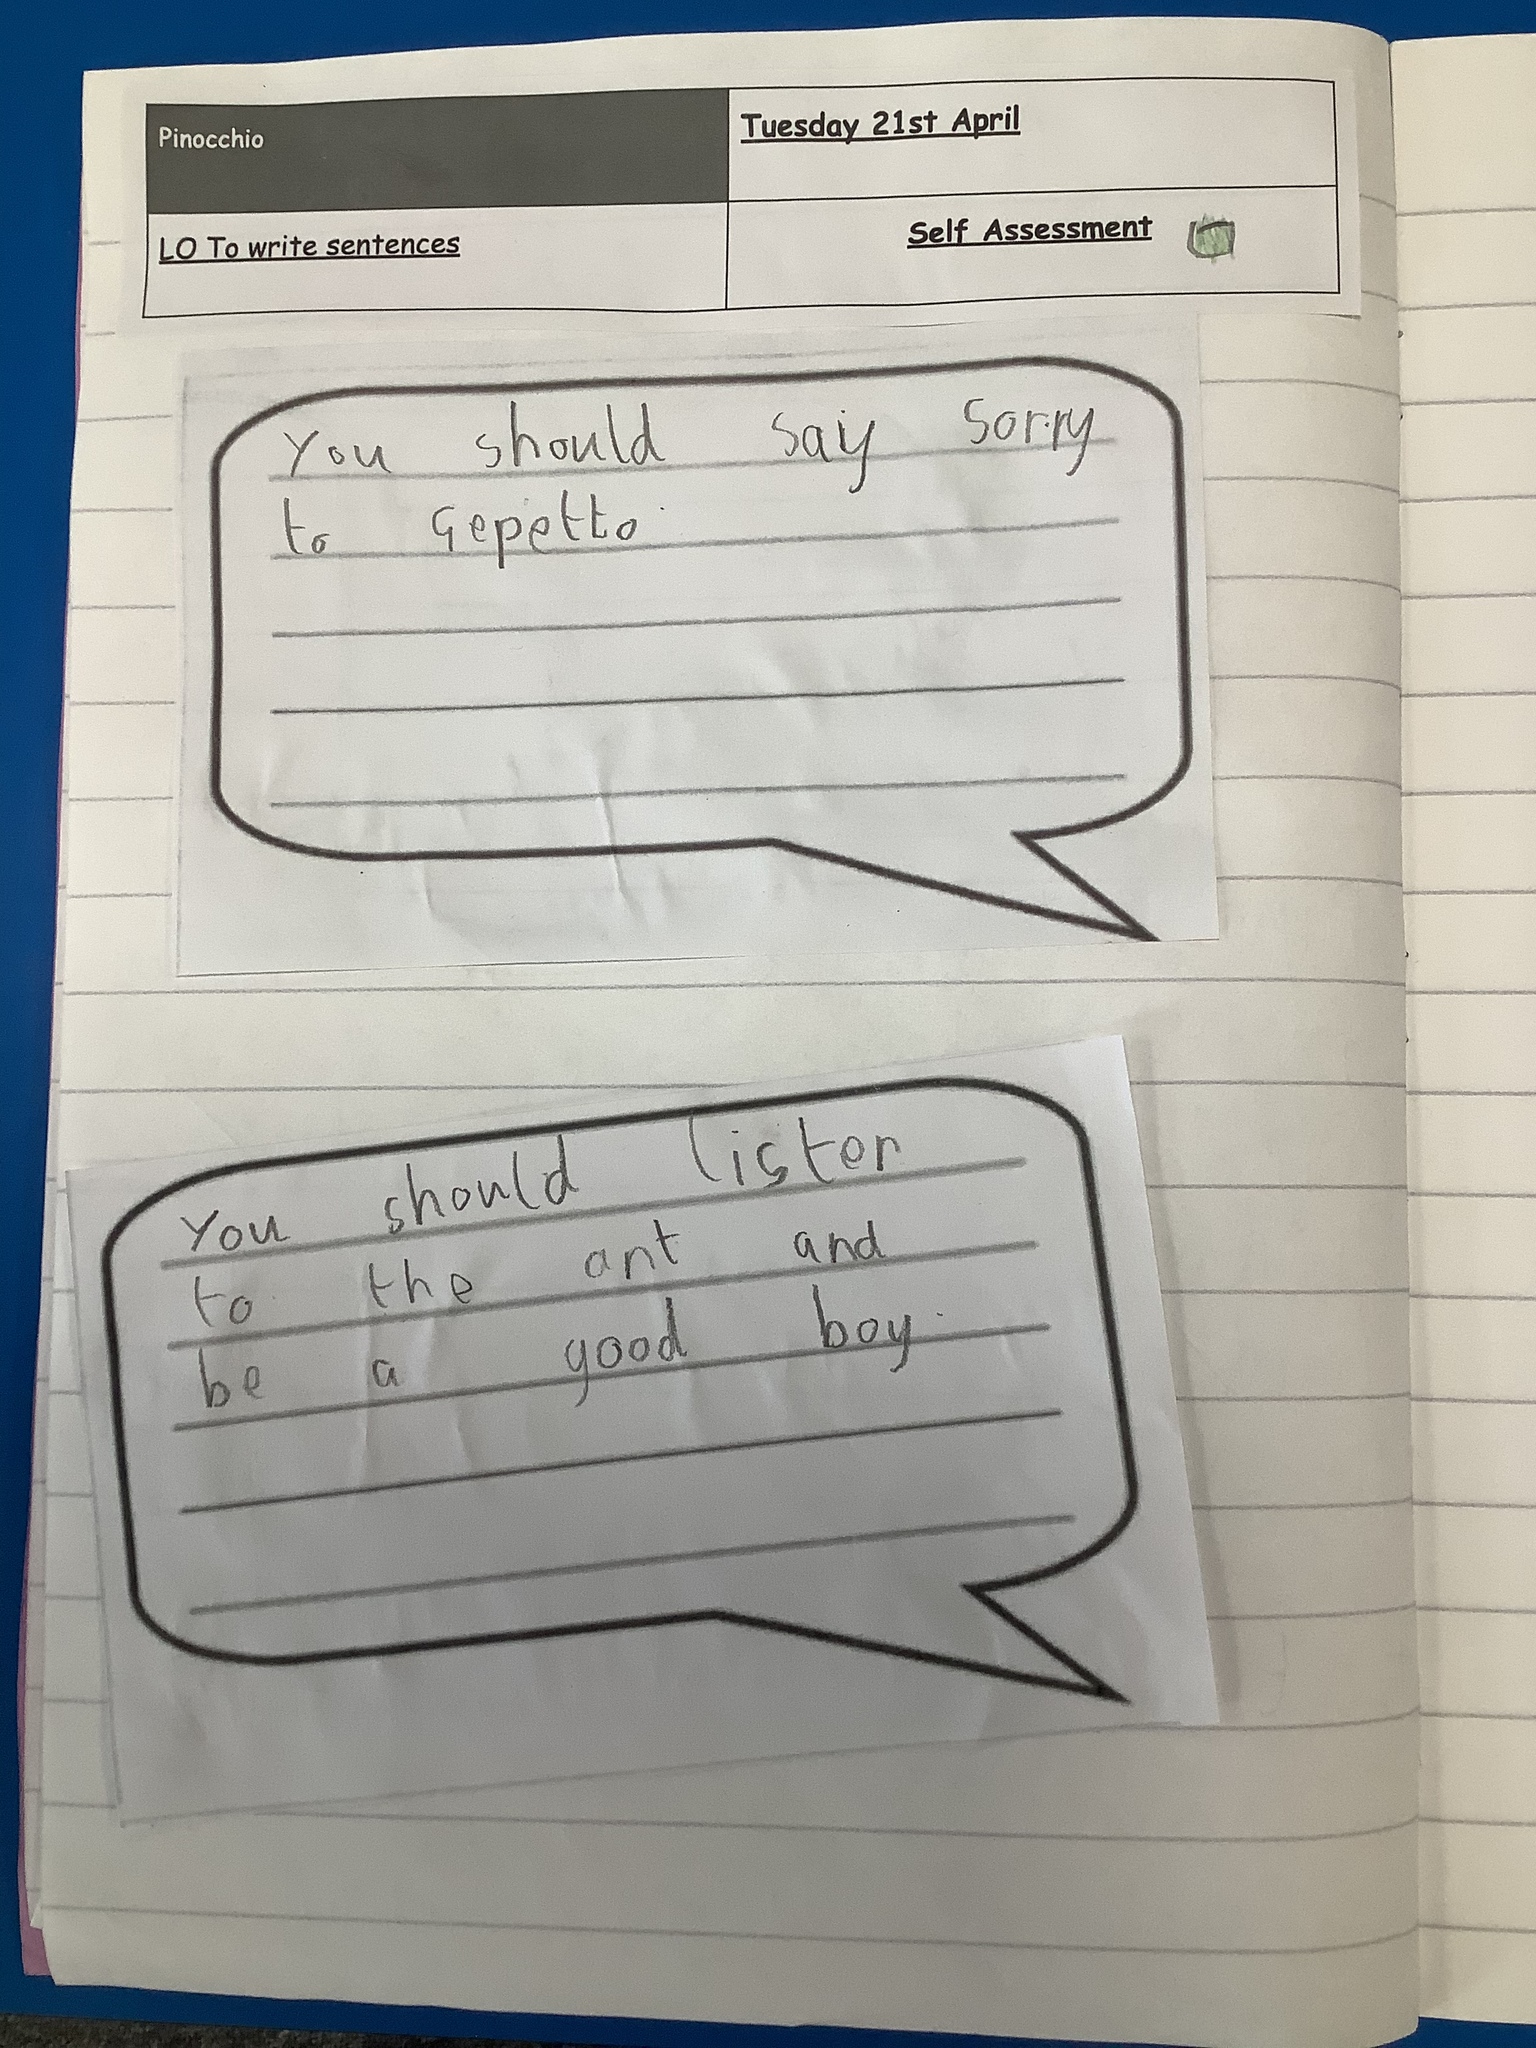 Pinocchio
Tuesday 21st April
LO To write sentences
Self Assessment
You should say sorry
to Gepetto.
You should listen
to the ant and
be a good boy.